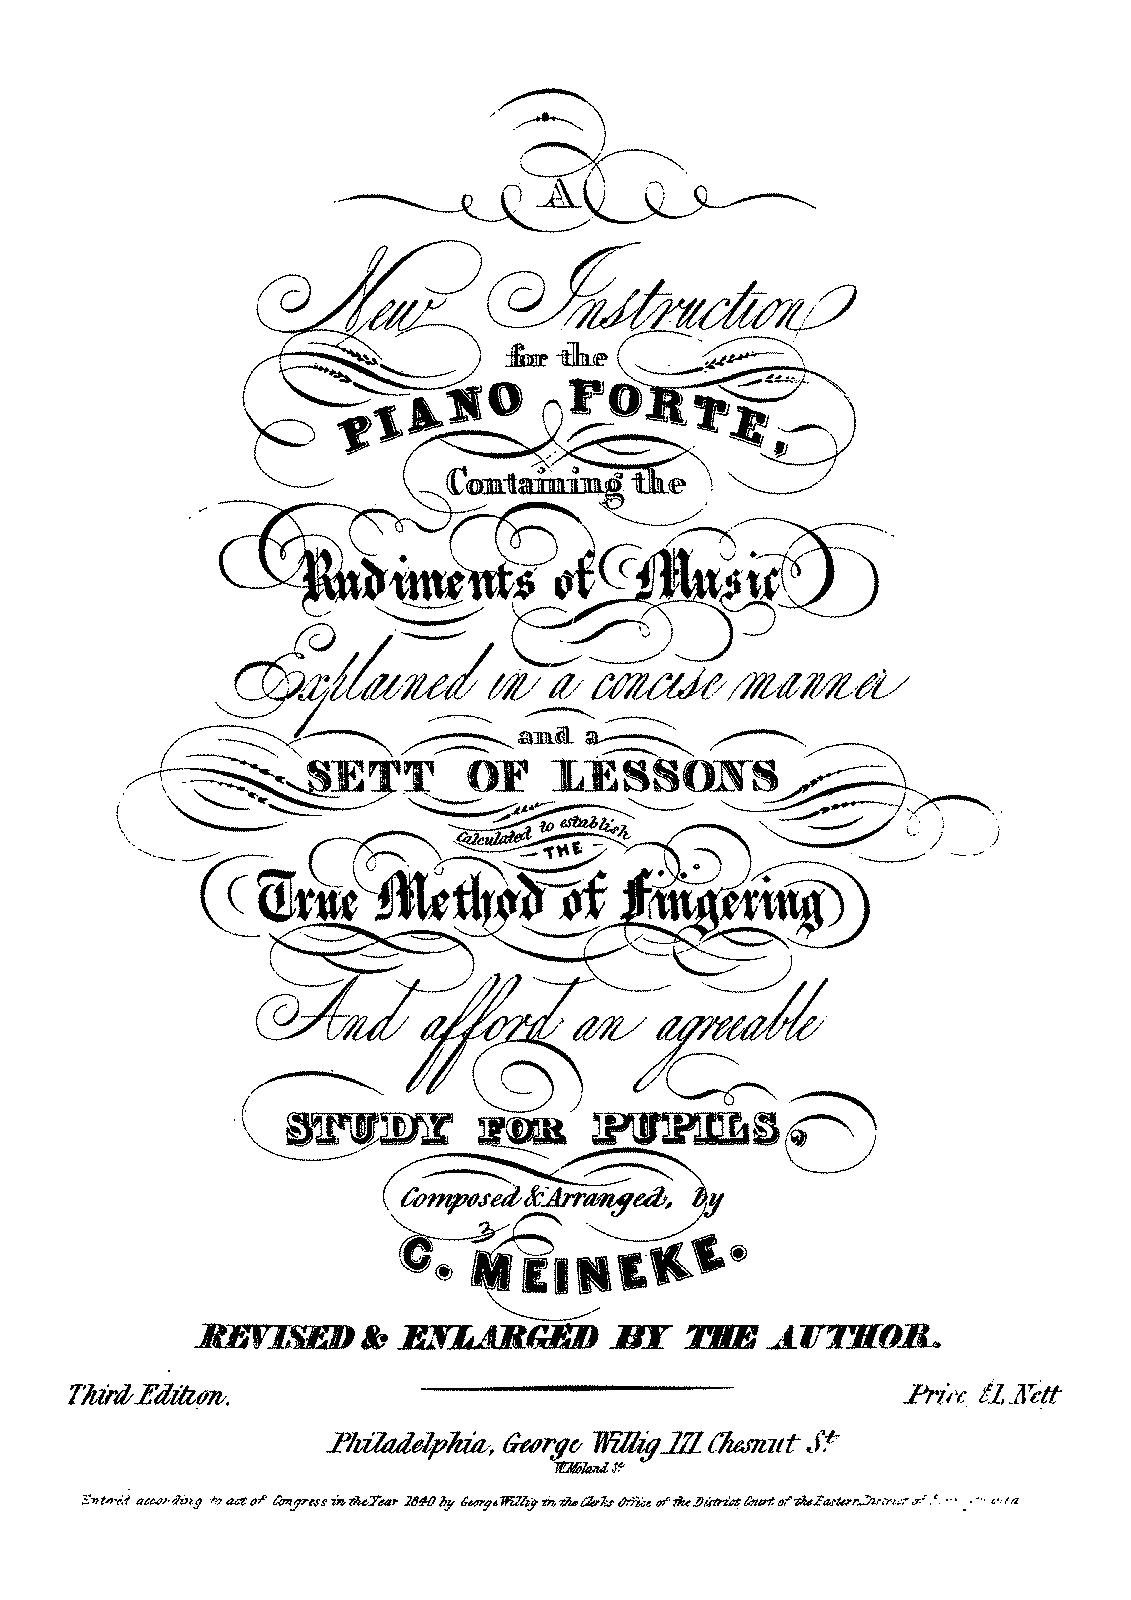 A
New Instruction
for the
PIANO FORTE,
Containing the
Rudiments of Music
Explained in a concise manner
and a
SETT OF LESSONS
Calculated to establish
THE
True Method of Fingering
And afford an agreeable
STUDY FOR PUPILS,
Composed & Arranged, by
3
C. MEINEKE.
REVISED & ENLARGED BY THE AUTHOR.
Third Edition. Price $1, Nett
Philadelphia, George Willig 171 Chesnut St.
Entered according to act of Congress in the Year 1840 by George Willig in the Clerks Office of the District Court of the Eastern District of